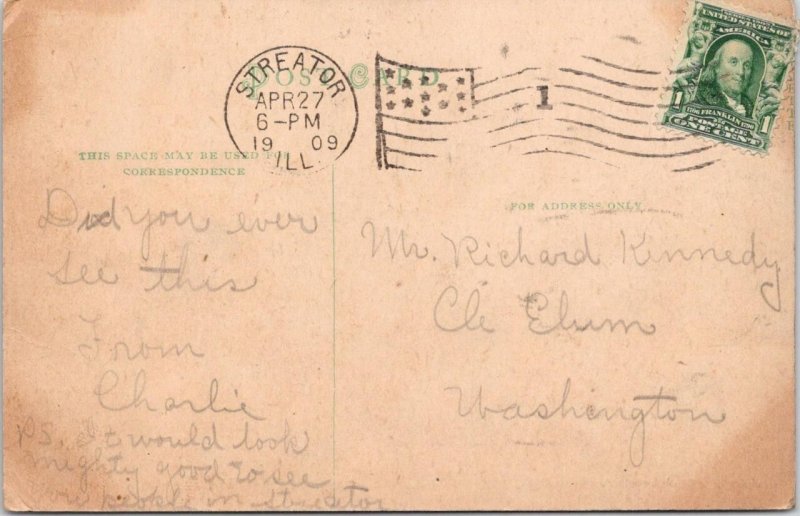 POST CARD
STREATOR
APR 27
6-PM
19 09
ILL.
1
UNITED STATES OF
AMERICA
1 1
FRANKLIN
POSTAGE
ONE CENT
THIS SPACE MAY BE USED FOR
CORRESPONDENCE
FOR ADDRESS ONLY
Did you ever
see this
From
Charlie
PS. It would look
mighty good to see
you people in Streator
Mr. Richard Kinnedy
Cle Elum
Washington